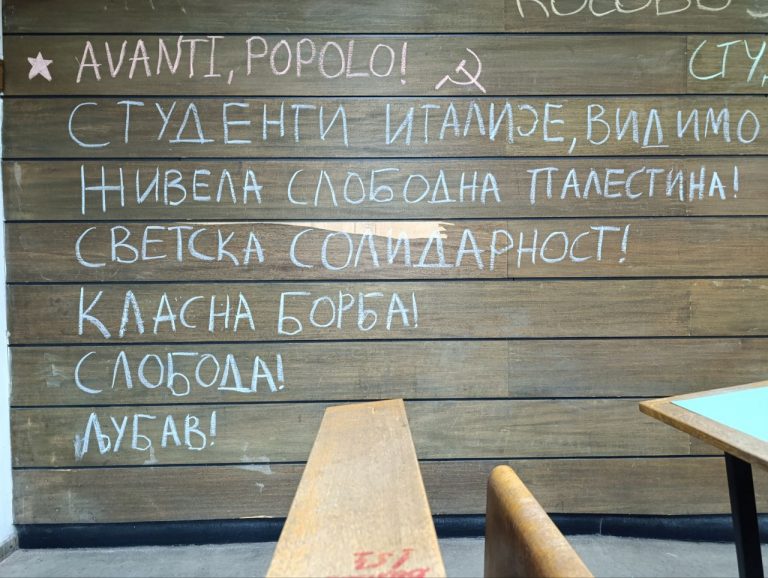 КОСОВО
AVANTI, POPOLO!
СТУ
СТУДЕНТИ ИТАЛИЈЕ, ВИДИМО
ЖИВЕЛА СЛОБОДНА ПАЛЕСТИНА!
СВЕТСКА СОЛИДАРНОСТ!
КЛАСНА БОРБА!
СЛОБОДА!
ЉУБАВ!